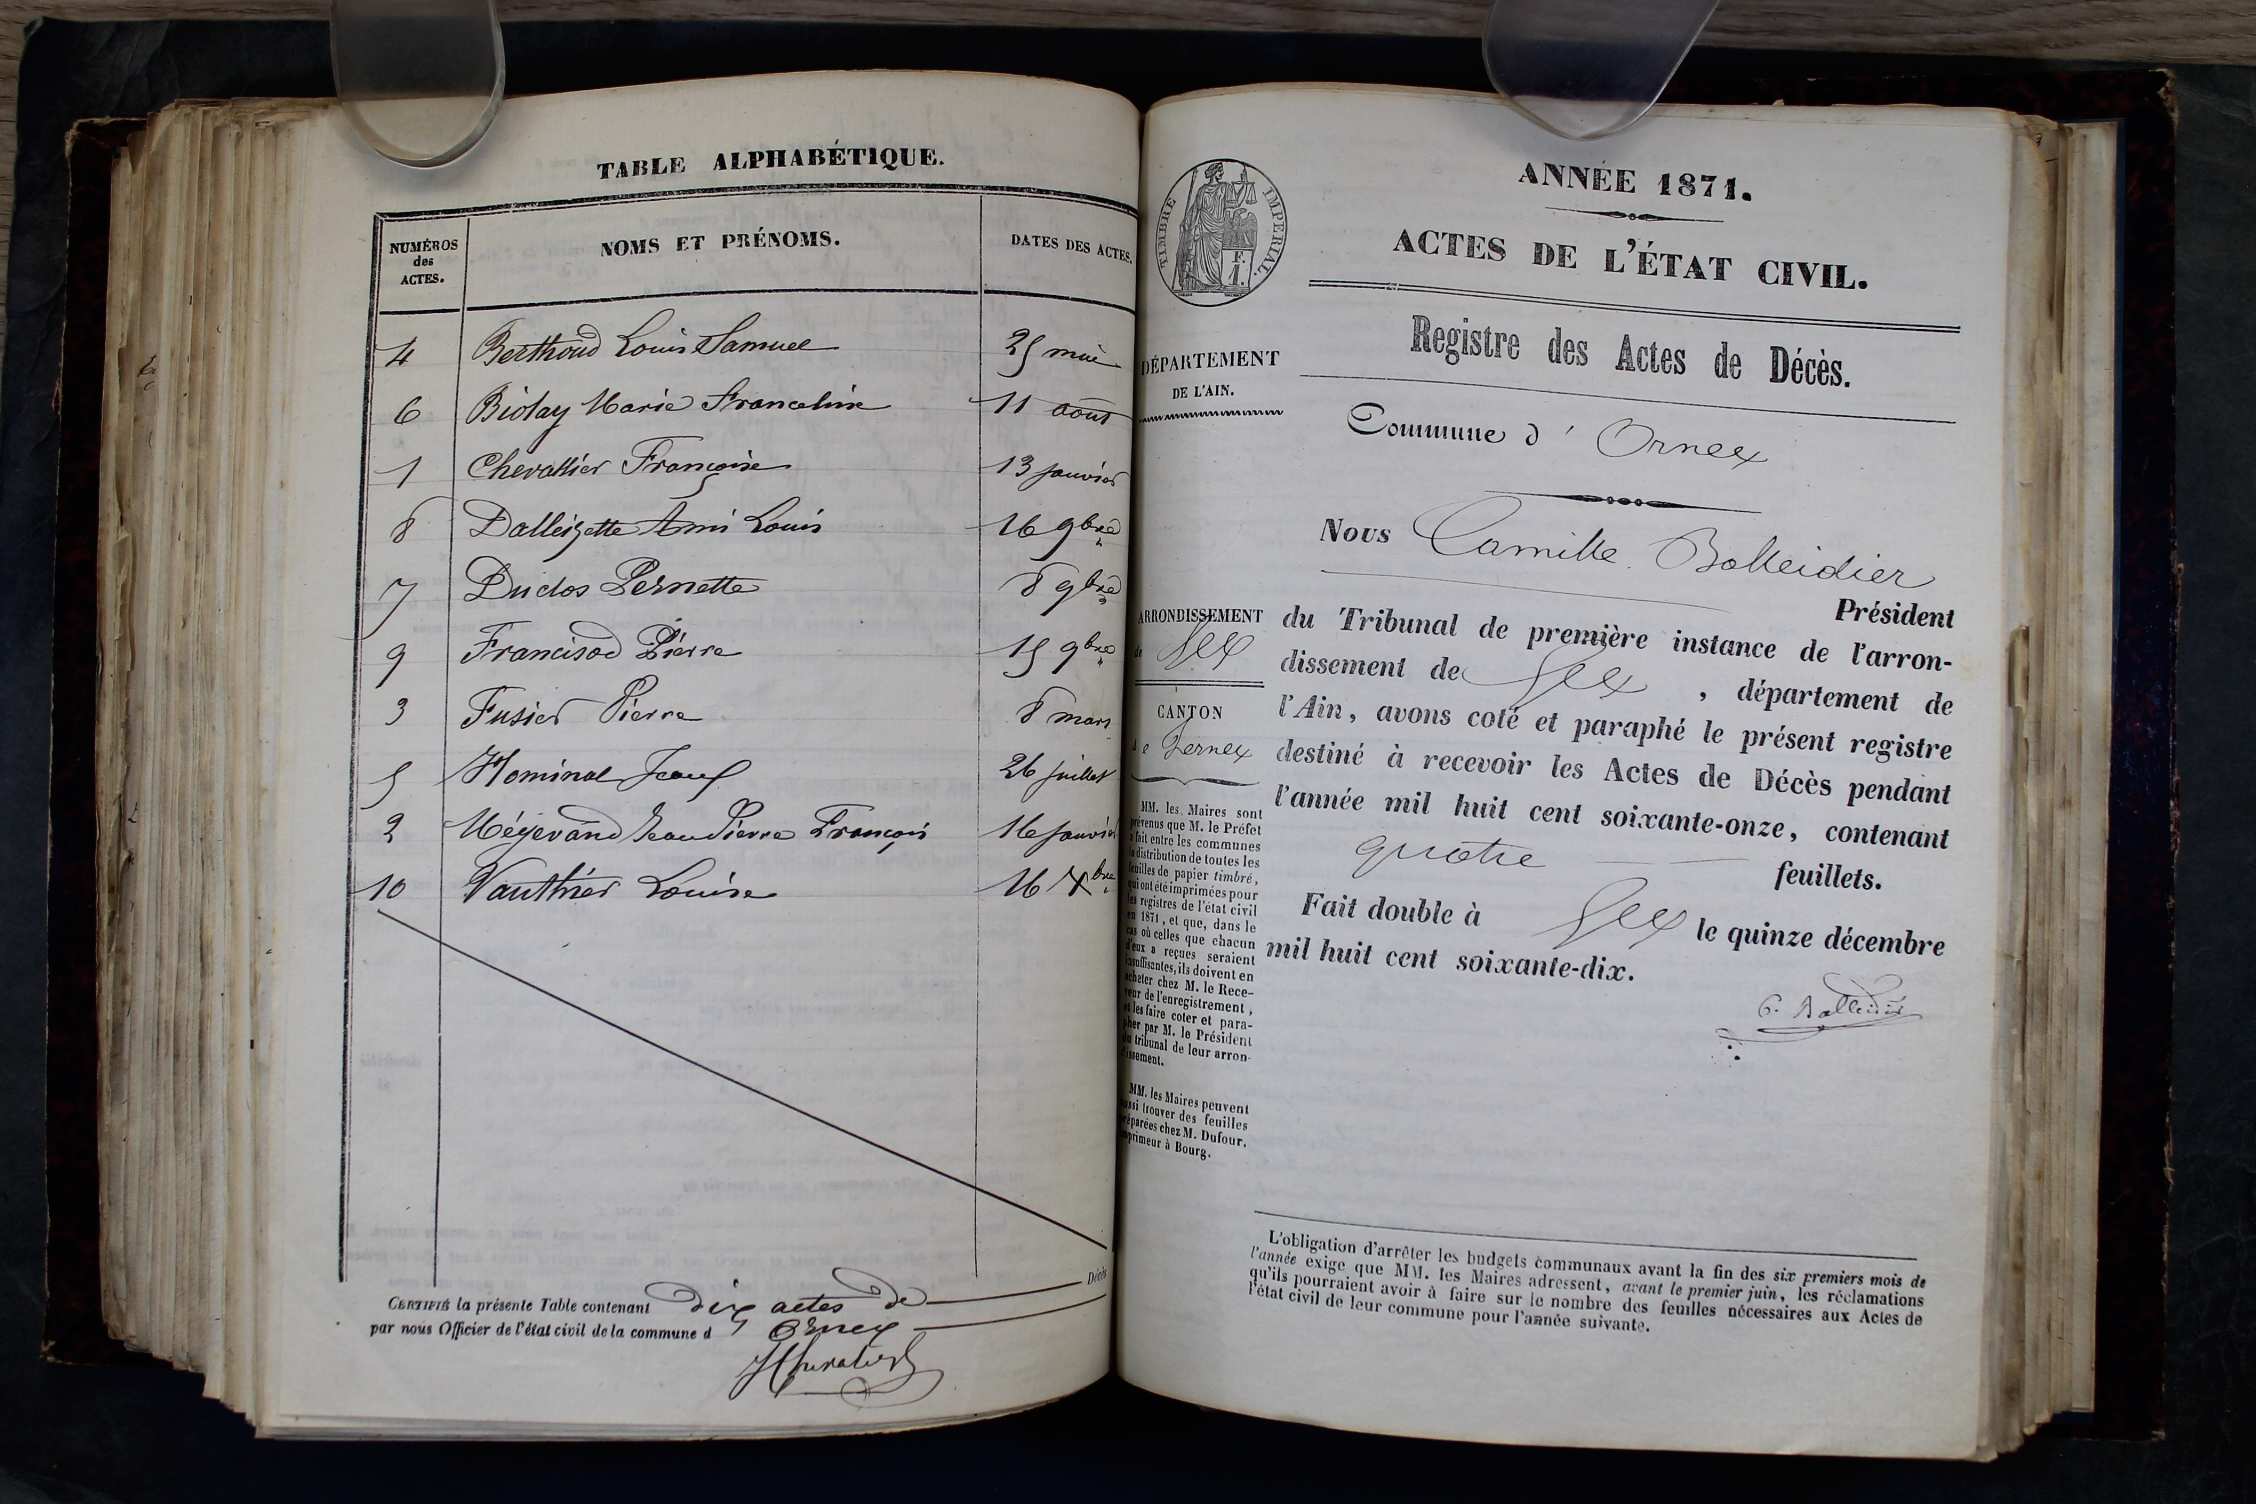 TABLE ALPHABÉTIQUE.
NUMÉROS des ACTES. NOMS ET PRÉNOMS. DATES DES ACTES.
4 Berthoud Louis Samuel 25 mai
6 Biolay Marie Franceline 11 août
1 Chevallier Françoise 13 janvier
8 Dalleizette Ami Louis 16 9bre
7 Duclos Pernette 8 9bre
9 Francisod Pierre 15 9bre
3 Fusier Pierre 8 mars
5 Nominal Jean 26 juillet
2 Mégevand Jean Pierre François 16 janvier
10 Vauthier Louise 16 Xbre
CERTIFIÉ la présente Table contenant dix actes de Décès
par nous Officier de l'état civil de la commune d Ornex
TIMBRE IMPERIAL.
F.
1.
ANNÉE 1871.
ACTES DE L'ÉTAT CIVIL.
Registre des Actes de Décès.
DÉPARTEMENT
DE L'AIN.
Commune d' Ornex
Nous Camille Bolleidier
Président
ARRONDISSEMENT
de Gex
CANTON
de Fernex
du Tribunal de première instance de l'arron-
dissement de Gex, département de
l'Ain, avons coté et paraphé le présent registre
destiné à recevoir les Actes de Décès pendant
l'année mil huit cent soixante-onze, contenant
quatre feuillets.
Fait double à Gex le quinze décembre
mil huit cent soixante-dix.
MM. les Maires sont
prévenus que M. le Préfet
a fait entre les communes
la distribution de toutes les
feuilles de papier timbré,
qui ont été imprimées pour
les registres de l'état civil
en 1871, et que, dans le
cas où celles que chacun
d'eux a reçues seraient
insuffisantes, ils doivent en
acheter chez M. le Rece-
veur de l'enregistrement,
et les faire coter et para-
pher par M. le Président
du tribunal de leur arron-
dissement.
MM. les Maires peuvent
aussi trouver des feuilles
préparées chez M. Dufour,
imprimeur à Bourg.
L'obligation d'arrêter les budgets communaux avant la fin des six premiers mois de
l'année exige que MM. les Maires adressent, avant le premier juin, les réclamations
qu'ils pourraient avoir à faire sur le nombre des feuilles nécessaires aux Actes de
l'état civil de leur commune pour l'année suivante.